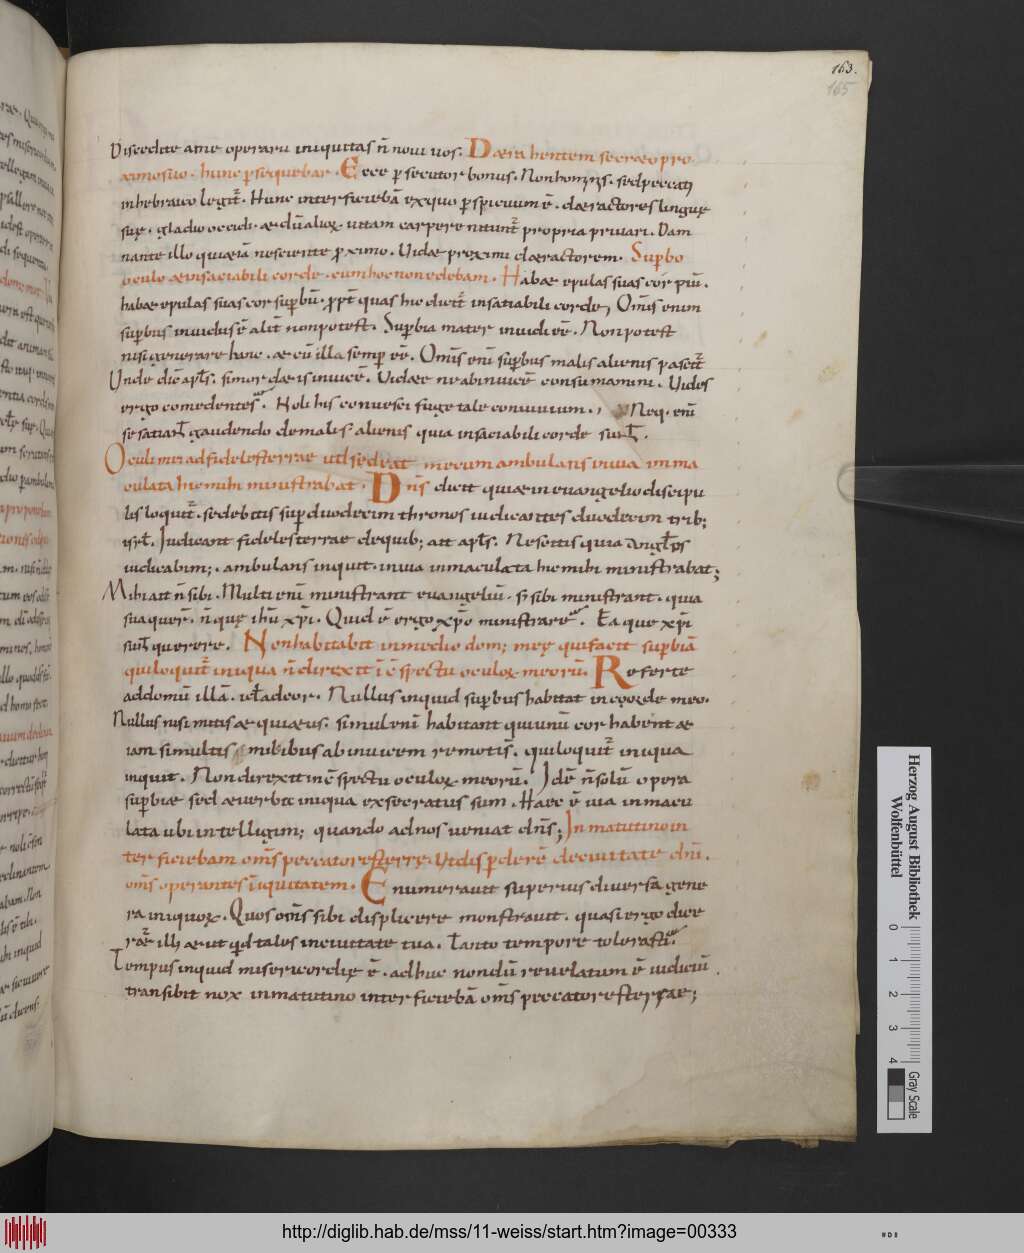 163.
165
Discedite a me operarii iniquitatis n̄ noui uos. Detrahentem secreto pro
ximo suo. hunc persequebar. Ecce persecutor bonus. Non hominis. sed peccati
in hebraico legit̄. Hunc interficiebā ex quo perspicuum ē. detractores linguę
suę. gladio occidi. et dū alioꝝ uitam carpere nitunt̄ propria priuari. Dam
nante illo quę etiā nesciente proximo. Uidete proximi detractorem. Superbo
oculo et insatiabili corde. cum hoc non edebam. Habet epulas suas cor piū.
habet epulas suas cor superbū. ꝓpt̄ quas hic dicit̄ insatiabili corde, Om̄is enim
superbus inuidus ē aliter non potest. Superbia mater inuidię ē. Non potest
nisi generare hanc. et cū illa semper eē. Om̄is eni superbus malis alienis pascit̄
Unde dic̄ apl̄s. si mordetis inuicē. Uidete ne ab inuicē consumamini. Uides
ergo comedentes. Noli his conuesci fuge tale conuiuium. Neq. enī
se satiant gaudendo de malis alienis quia insaciabili corde sunt.
Oculi mei ad fideles terrae ut sedeat mecum ambulans in uia imma
culata hic mihi ministrabat. Dn̄s dicit quia et in euangelio discipu
lis loquit̄. sedebitis super duodecim thronos iudicantes duodecim trib;
isrl̄. Iudicant fideles terrae de quib; ait apl̄s. Nescitis quia angelos
iudicabim;. ambulans inquit. in uia inmaculata hic mihi ministrabat;
Mihi ait n̄ sibi. Multi enī ministrant euangeliū. sed sibi ministrant. quia
sua quer̄. n̄ quę ihū xp̄i. Quid ē ergo xp̄o ministrare. Ea que xp̄i
sunt querere. Non habitabit in medio dom; meę qui facit superbiā
qui loquit̄ iniqua n̄ direxit in cspectu oculoꝝ meorū. Referte
ad domū illā. id ad cor. Nullus inquid superbus habitat in corde meo.
Nullus nisi mitis et quietus. simul enī habitant qui unū cor habent et
iam si multis mibibus ab inuicem remotis. qui loquit̄ iniqua
inquit. Non direxit in cspectu oculoꝝ meorū. Idē n̄ solū opera
superbiae sed et uerbi iniqua execratus sum. Haec ē uia inmacu
lata ubi intelligim; quando ad nos ueniat dn̄s; In matutino in
terficiebam om̄s peccatores terrę. Ut disperderē de ciuitate dn̄i.
om̄s operantes iniquitatem. Enumerauit superius diuersa gene
ra iniquoꝝ. Quos om̄s sibi displicere monstrauit. quasi ergo dice
ret illi et ut qd tales in ciuitate tua. Tanto tempore tolerasti.
Tempus inquid misericordię ē. adhuc nondū reuelatum ē iudiciū.
transibit nox in matutino interficiebā om̄s peccatores terrae;
Herzog August Bibliothek
Wolfenbüttel
0 1 2 3 4
Gray Scale
http://diglib.hab.de/mss/11-weiss/start.htm?image=00333